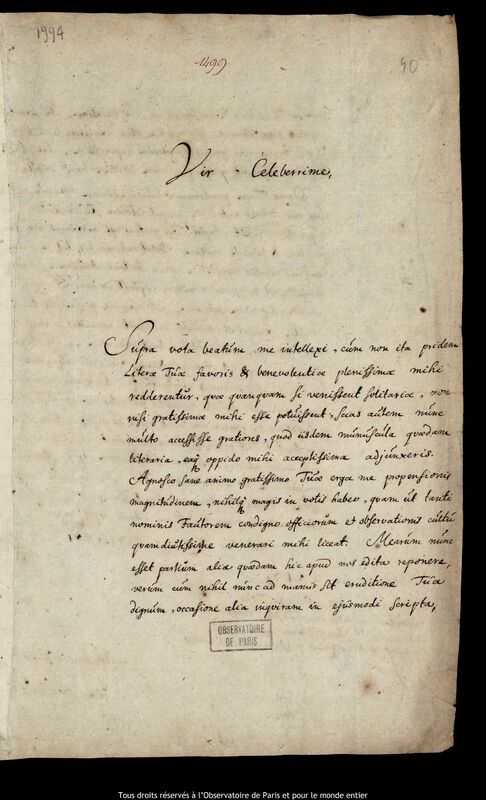 1994
1499.
90
Vir Celeberrime,
Supra vota beatum me intellexi, cùm non ita pridem
Literæ Tuæ favoris & benevolentiæ plenissimæ mihi
redderentur, quæ quanquam si venissent solitariæ, non
nisi gratissimæ mihi esse potuissent, scias autem nunc
multo accessisse gratiores, quod iisdem munuscula quædam
literaria, eaq oppido mihi acceptissima adjunxeris.
Agnosco sane animo gratissimo Tuæ erga me propensionis
magnitudinem, nihilq magis in votis habeo, quam ut tanti
nominis Fautorem condigno officiorum et observationis cultu
quamdiutissime venerari mihi liceat. Mearum nunc
esset partium alia quædam hic apud nos edita reponere,
verum cum nihil nunc ad manus sit eruditione Tua
dignum, occasione alia inquiram in ejusmodi scripta,
OBSERVATOIRE
DE PARIS
Tous droits réservés à l'Observatoire de Paris et pour le monde entier